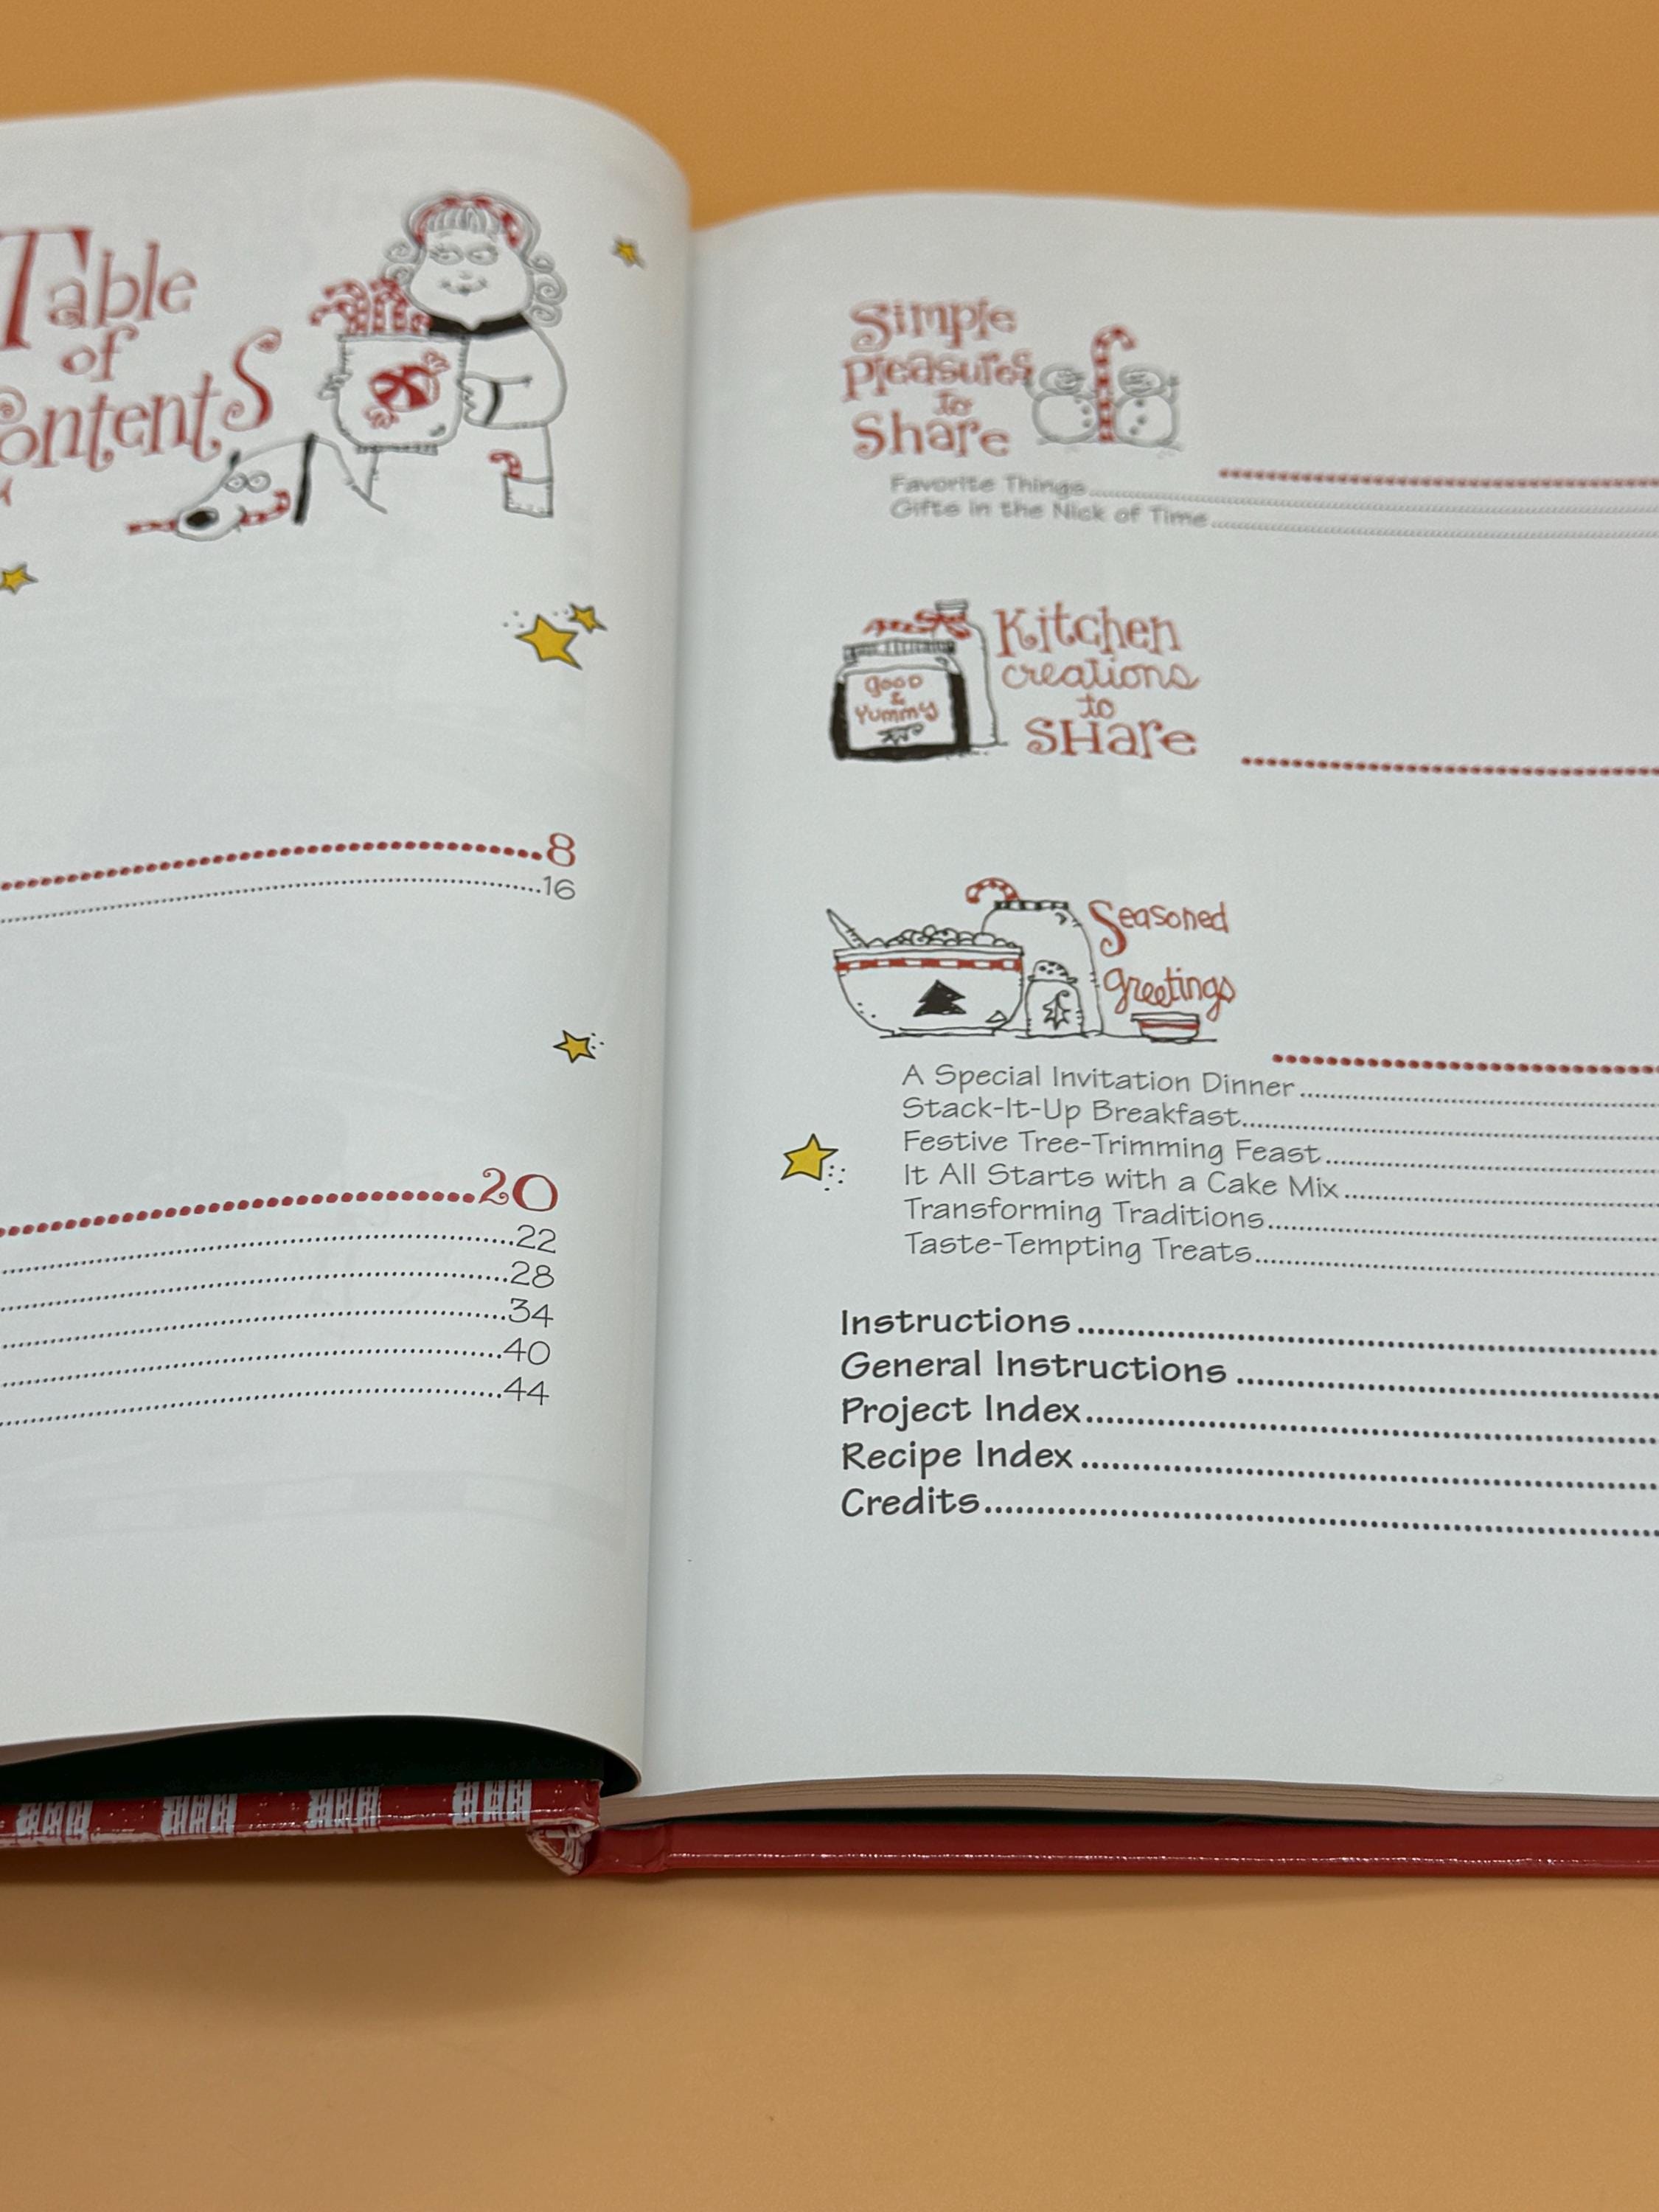 Table
of
ontents
8
16
20
22
28
34
40
44
Simple
Pleasures
to
Share
Favorite Things
Gifts in the Nick of Time
GOOD
&
Yummy
Kitchen
creations
to
SHare
Seasoned
greetings
A Special Invitation Dinner
Stack-It-Up Breakfast
Festive Tree-Trimming Feast
It All Starts with a Cake Mix
Transforming Traditions
Taste-Tempting Treats
Instructions
General Instructions
Project Index
Recipe Index
Credits